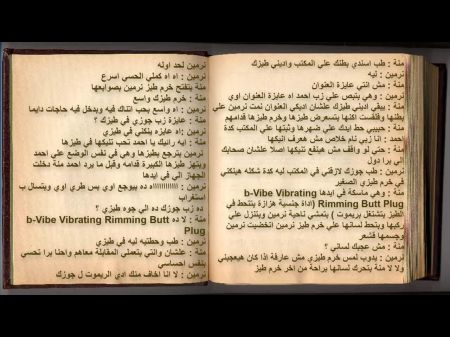 منة : طب اسندي بطنك علي المكتب واديني طيزك
نرمين : ليه
منة : مش انتي عايزة العنوان
نرمين : وهي بتبص علي زب احمد اه عايزة العنوان اوي
منة : يبقي اديني طيزك علشان اديكي العنوان نمت نرمين علي
بطنها وفقست اكنها بتستعرض طيزها وخرم طيزها قدامهم
احمد : انا زبي نام خلاص مش هعرف انيكها
منة : حبيبي حط ايدك علي ضهرها وثبتها علي المكتب كدة
منة : حتي لو واقف مش هينفع تنيكها اصلا علشان صحابك
الي برا دول
نرمين : طب جوزك لازقتي في المكتب ليه كدة شكله هينكني
في خرم طيزي الصغير
منة : وهي ماسكة في ايدها b-Vibe Vibrating
Rimming Butt Plug (اداة جنسية هزازة بتتحط في
الطيز بتشتغل بريموت ) بتمشي ناحية نرمين وبتنزل علي
ركبها وبتحط لسانها علي خرم طيز نرمين اتخضيت نرمين
وجسمها قشعر
منة : مش عجبك لساني ؟
نرمين : يدوب لمس خرم طيزي مش عارفة اذا كان هيعجبني
ولا لا منة بتحرك لسانها براحة من اخر خرم طيز
نرمين لحد اوله
نرمين : اه اه كملي الحسي اسرع
منة بتفتح خرم طيز نرمين بصوابعها
منة : خرم طيزك واسع
نرمين : اه واسع بحب اتناك فيه وبدخل فيه حاجات دايما
منة : عايزة زب جوزي في طيزك ؟
نرمين : اه عايزة ينكني في طيزي
منة : ايه رانيك يا احمد تحب تنيكها في طيزها
نرمين بترجع بطيزها وهي في نفس الوضع علي احمد
وبتهز طيزها الكبيرة قدامه وقبل ما يرد احمد منة دخلت
الجهاز الي في ايدها
نرمين : اااااااااااه ده بيوجع اوي بس طري اوي وبتسال ب
استغراب
ده زب جوزك ده الي جوه طيزي ؟
منة : لا ده b-Vibe Vibrating Rimming Butt
Plug
نرمين : طب وحطتيه ليه في طيزي
منة : علشان والتي بتعملي المقابلة معاهم واحنا برا تحسي
بنفس احساسي
نرمين : لا انا اخاف منك ادي الريموت ل جوزك